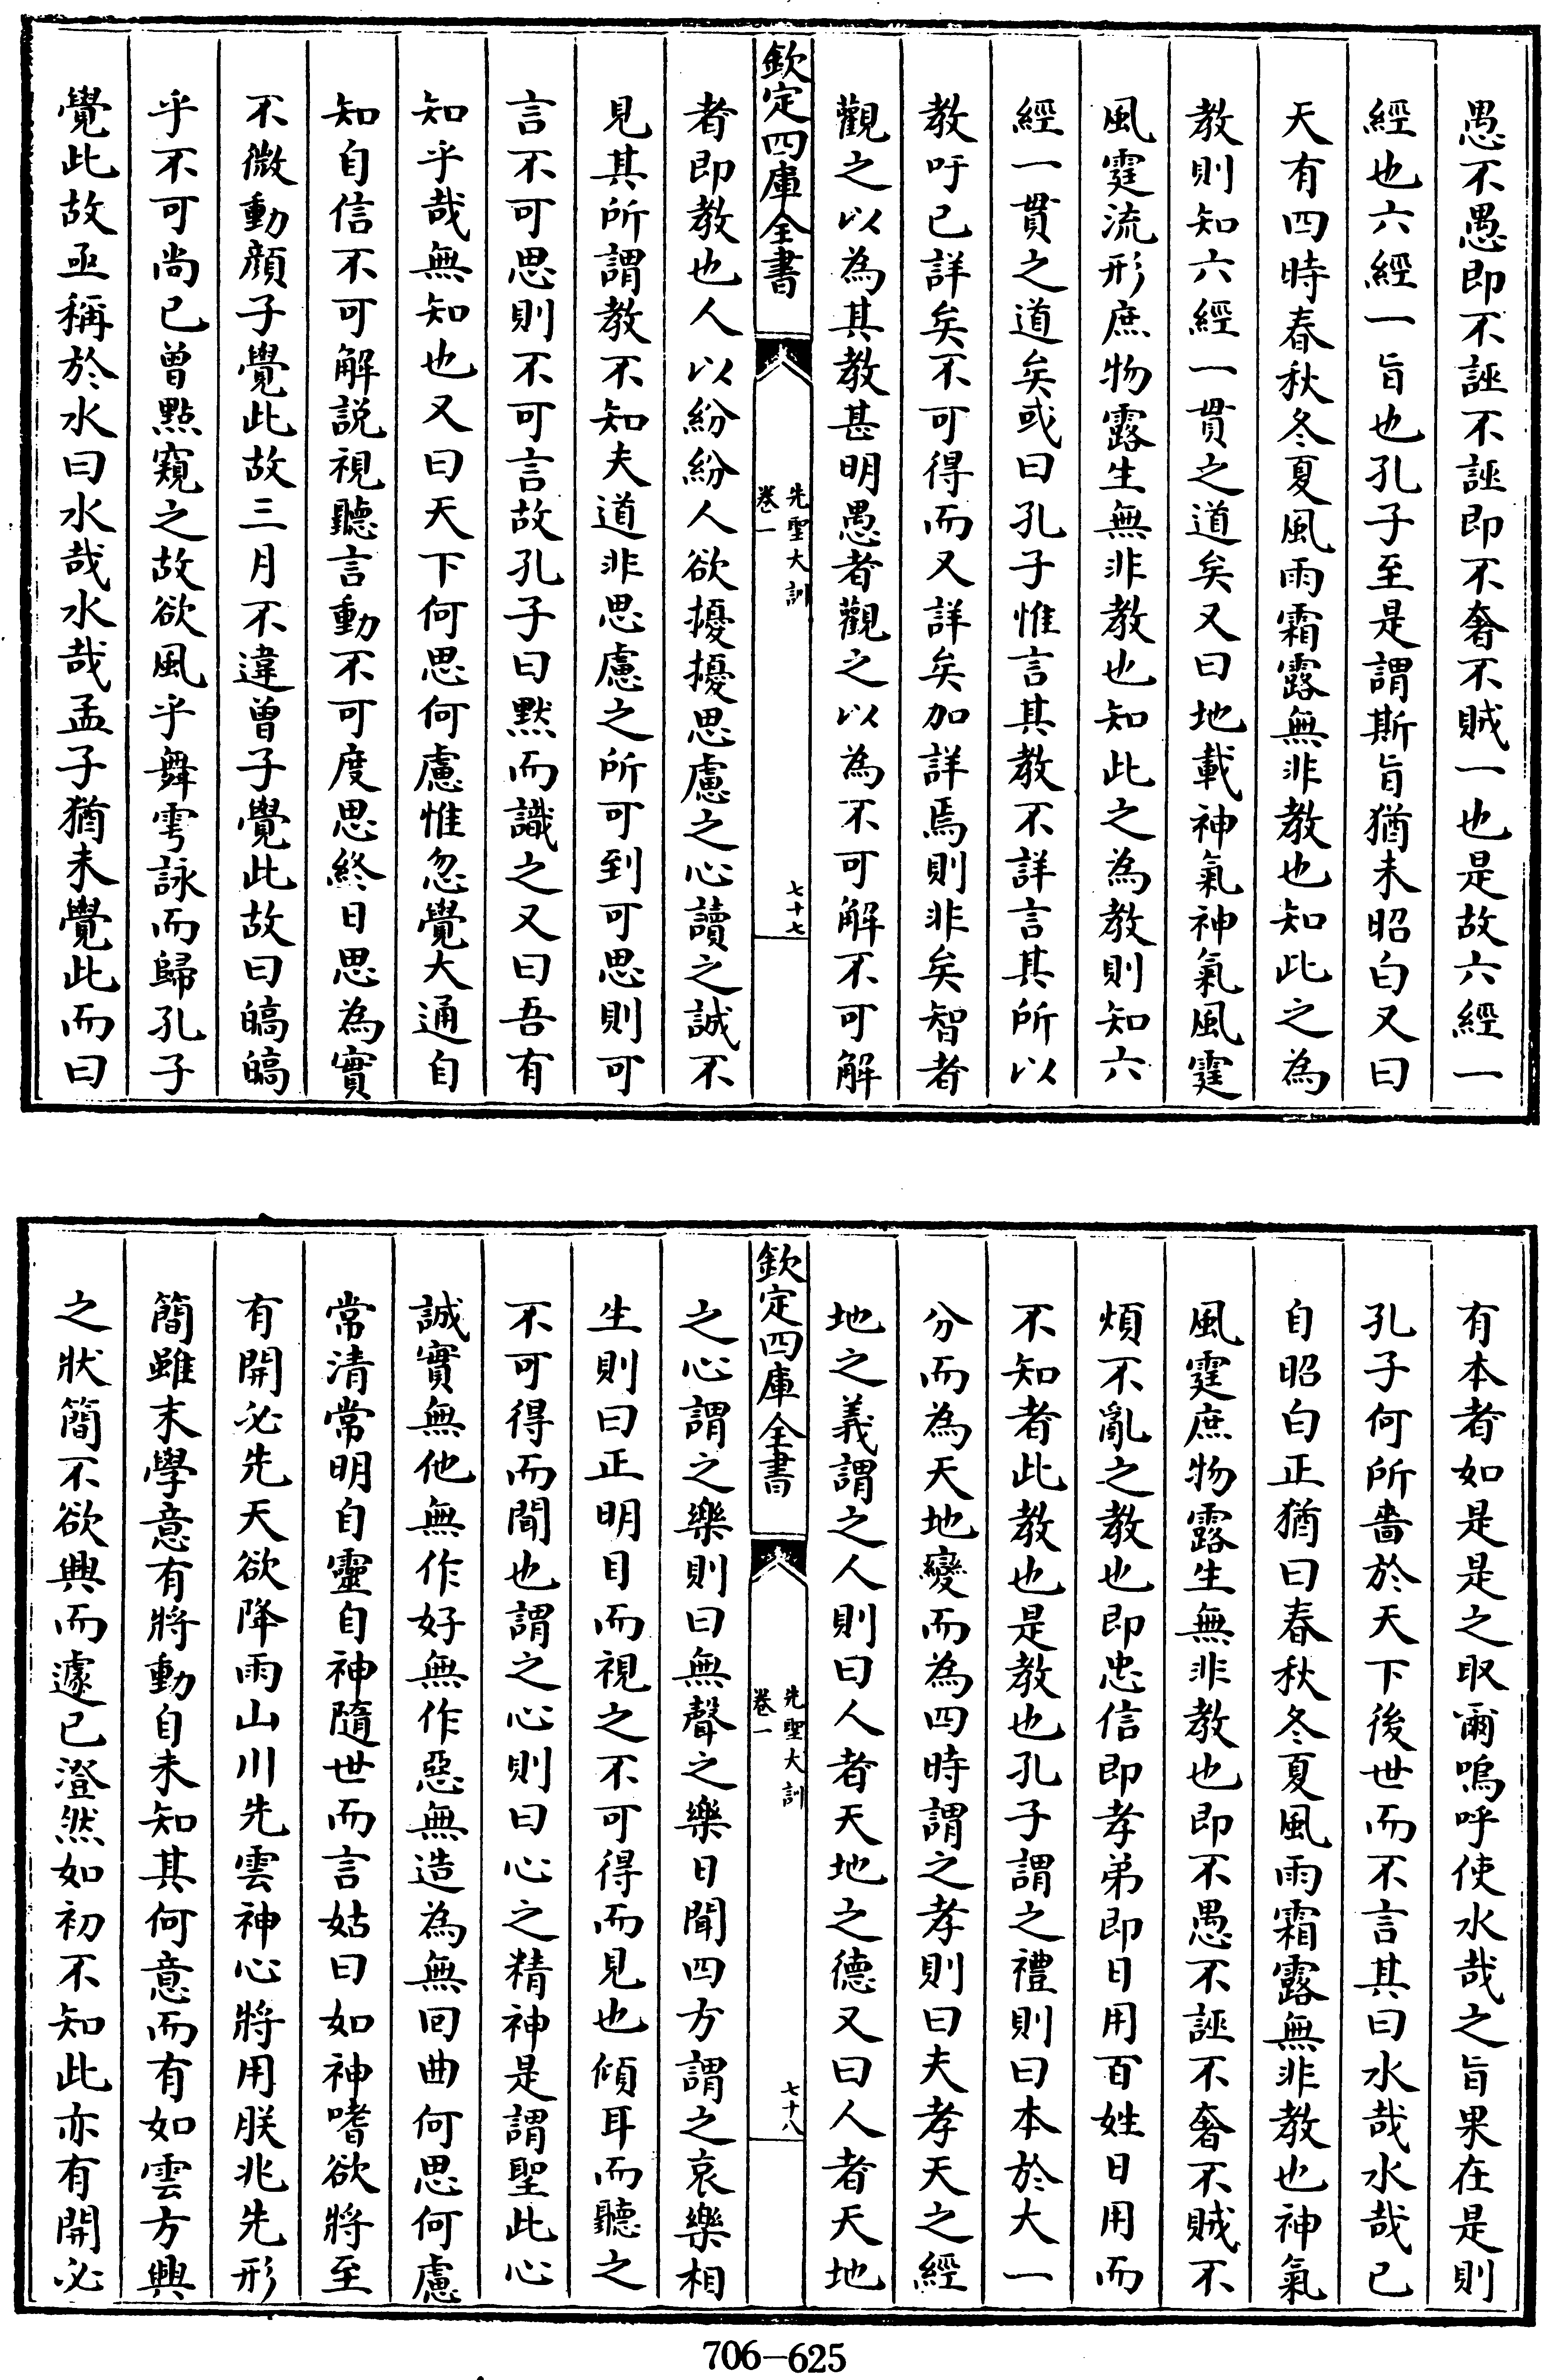 愚不愚即不誣不誣即不奢不賊一也是故六經一
經也六經一旨也孔子至是謂斯旨猶未昭白又曰
天有四時春秋冬夏風雨霜露無非教也知此之為
教則知六經一貫之道矣又曰地載神氣神氣風霆
風霆流形庶物露生無非教也知此之為教則知六
經一貫之道矣或曰孔子惟言其教不詳言其所以
教吁已詳矣不可得而又詳矣加詳焉則非矣智者
觀之以為其教甚明愚者觀之以為不可解不可解
欽定四庫全書
先聖大訓
卷一
七十七
者即教也人以紛紛人欲擾擾思慮之心讀之誠不
見其所謂教不知夫道非思慮之所可到可思則可
言不可思則不可言故孔子曰默而識之又曰吾有
知乎哉無知也又曰天下何思何慮惟忽覺大通自
知自信不可解說視聽言動不可度思終日思為實
不微動顔子覺此故三月不違曾子覺此故曰皜皜
乎不可尚已曾點窺之故欲風乎舞雩詠而歸孔子
覺此故亟稱於水曰水哉水哉孟子猶未覺此而曰
有本者如是是之取爾嗚呼使水哉之旨果在是則
孔子何所嗇於天下後世而不言其曰水哉水哉已
自昭白正猶曰春秋冬夏風雨霜露無非教也神氣
風霆庶物露生無非教也即不愚不誣不奢不賊不
煩不亂之教也即忠信即孝弟即日用百姓日用而
不知者此教也是教也孔子謂之禮則曰本於大一
分而為天地變而為四時謂之孝則曰夫孝天之經
地之義謂之人則曰人者天地之德又曰人者天地
欽定四庫全書
先聖大訓
卷一
七十八
之心謂之樂則曰無聲之樂日聞四方謂之哀樂相
生則曰正明目而視之不可得而見也傾耳而聽之
不可得而聞也謂之心則曰心之精神是謂聖此心
誠實無他無作好無作惡無造為無回曲何思何慮
常清常明自靈自神隨世而言姑曰如神嗜欲將至
有開必先天欲降雨山川先雲神心將用朕兆先形
簡雖末學意有將動自未知其何意而有如雲方興
之狀簡不欲興而遽已澄然如初不知此亦有開必
706—625